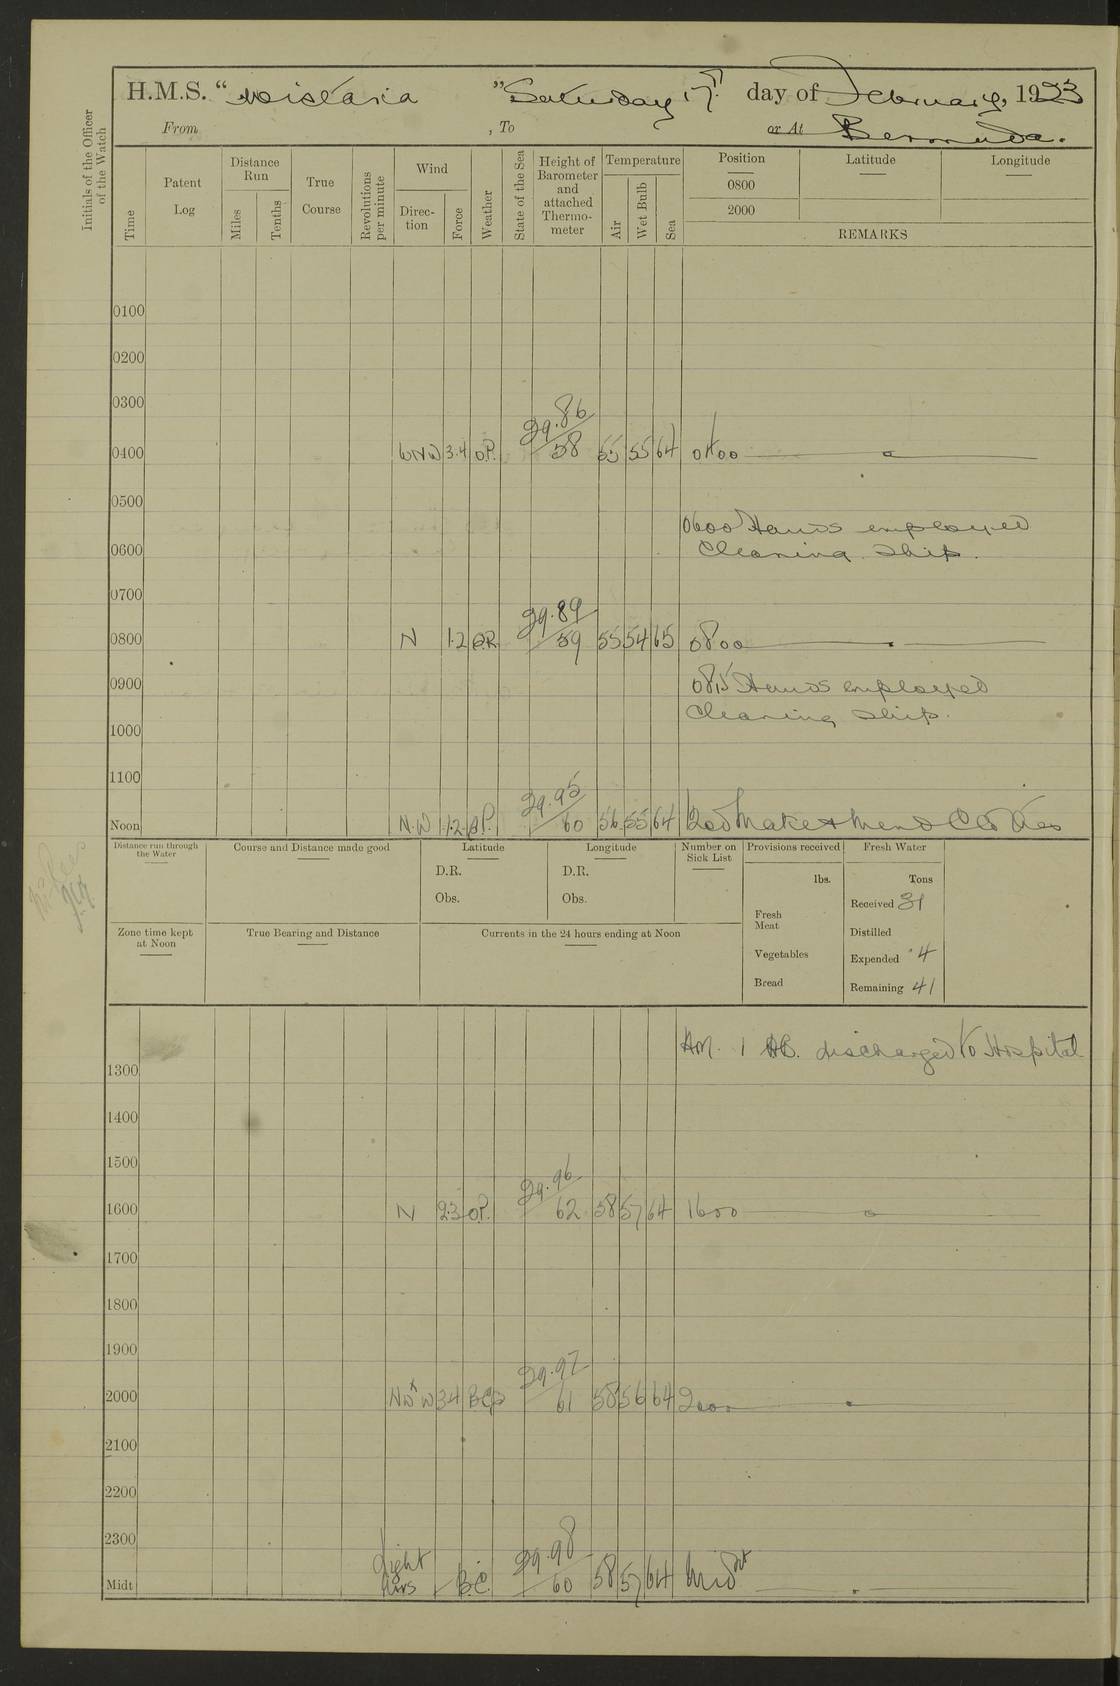 H.M.S. "Wistaria" Saturday 17th day of February, 1923
From , To or At Bermuda.
Initials of the Officer of the Watch
Time
Patent Log
Distance Run
Miles
Tenths
True Course
Revolutions per minute
Wind
Direction
Force
Weather
State of the Sea
Height of Barometer and attached Thermometer
Temperature
Air
Wet Bulb
Sea
Position Latitude Longitude
0800
2000
REMARKS
0100
0200
0300
0400 WNW 3.4 O.P. 29.86 58 55 55 64 0400
0500
0600 Hands employed
0600 Cleaning Ship.
0700
0800 N 1.2 29.89 59 55 54 65 0800
0900 0815 Hands employed
Cleaning Ship.
1000
1100
Noon N.W 1.2 29.95 60 56 55 64 1200 Make & Mend Clothes
Distance run through the Water
Course and Distance made good
Latitude
D.R.
Obs.
Longitude
D.R.
Obs.
Number on Sick List
Provisions received
lbs.
Fresh Meat
Vegetables
Bread
Fresh Water
Tons
Received 31
Distilled
Expended 4
Remaining 41
Zone time kept at Noon
True Bearing and Distance
Currents in the 24 hours ending at Noon
AM. 1 AB. discharged to Hospital
1300
1400
1500
1600 N 2.3 O.P. 29.96 62 58 57 64 1600
1700
1800
1900
2000 NW x W 3.4 29.97 61 58 56 64 2000
2100
2200
2300
Midt Light Airs B.C. 29.98 60 58 57 64 Midt